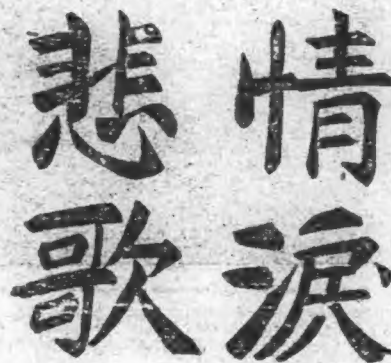 情淚
悲歌